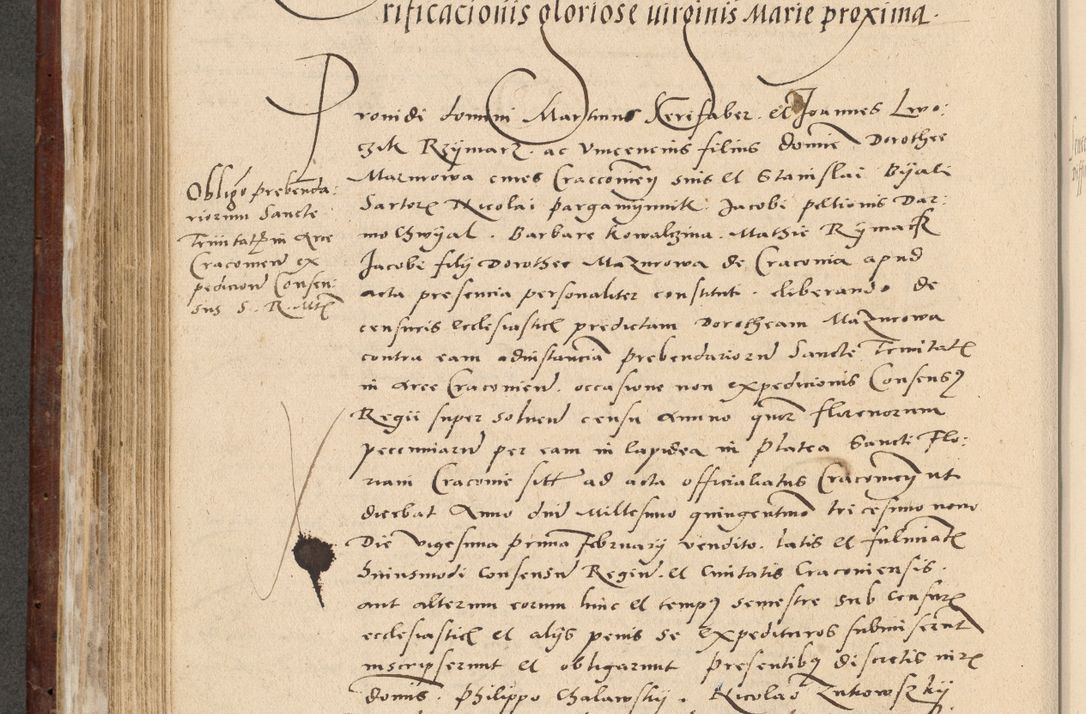 rificacionis gloriose uirginis Marie proxima.
Prouidi domini Martinus Xerifaber. et Joannes Lwo:
czik Rzÿmarz. ac Vincencius filius domine Dorothee
Mazurowa ciues Craccouien suis et Stanislai Bÿali
Sartoris Nicolai pargamÿnnik. Jacobi pellionis Dar:
mochwÿal. Barbare Kowalczina. Mathie Rÿmarz
Jacobi filÿ Dorothee Mazurowa de Craconia apud
acta presencia personaliter constituti. liberando de
censuris ecclesiasticis predictam Dorotheam Mazurowa
contra eam adinstancia prebendariorum Sancte Trinitatis
in Arce Cracouien. occasione non expedicionis Consensus
Regii super soluend censu Annuo florenorum
pecuniarum per eam in lapidea in Platea Sancti Flo:
riani Craconie ad acta officialiatus Cracouien ut
dicebat Anno dni Millesimo quingentmo tricesimo nono
Die vigesima prima Februarÿ vendito. latis et fulminatis
huiusmodi Consensum Regium. et Ciuitatis Cracouiensis.
aut alterum eorum hinc et tempus semestre sub Censuris
ecclesiasticis et alÿs penis se expedituros submiserunt
inscripserunt et obligarunt Presentibus discretis viris
domis. Philippo Chalawskÿ. Nicolao Zukowszkÿ
Obligo prebenda:
riorum Sancte
Trinitatis in Arce
Cracouien ex
pedicion Consen:
sus S. R. Mtis